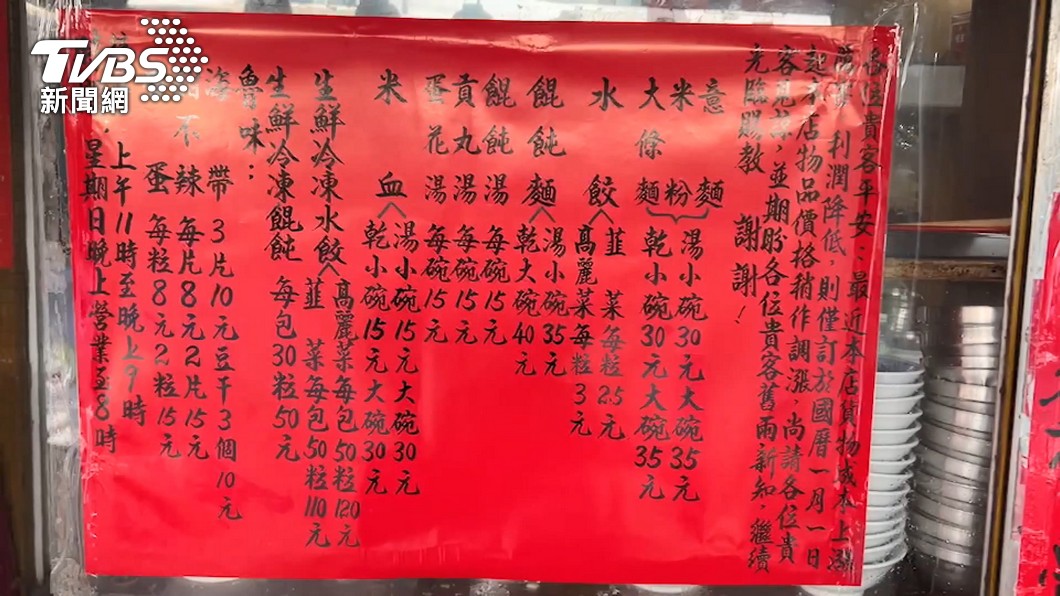 各位貴客平安：最近本店貨物成本上漲
利潤降低，則僅訂於國曆一月一日
起本店物品價格稍作調漲，尚請各位貴
客見諒，並期盼各位貴客舊雨新知，繼續
光臨賜教 謝謝！
意麵
米粉
大條麵
湯小碗30元大碗35元
乾小碗30元大碗35元
水餃
韮菜每粒2.5元
高麗菜每粒3元
餛飩麵
湯小碗35元
乾大碗40元
餛飩湯每碗15元
貢丸湯每碗15元
蛋花湯每碗15元
米血
湯小碗15元大碗30元
乾小碗15元大碗30元
生鮮冷凍水餃
高麗菜每包50粒120元
韮菜每包50粒110元
生鮮冷凍餛飩每包30粒50元
魯味：
海帶3片10元豆干3個10元
不辣每片8元2片15元
蛋每粒8元2粒15元
上午11時至晚上9時
星期日晚上營業至8時
TVBS
新聞網